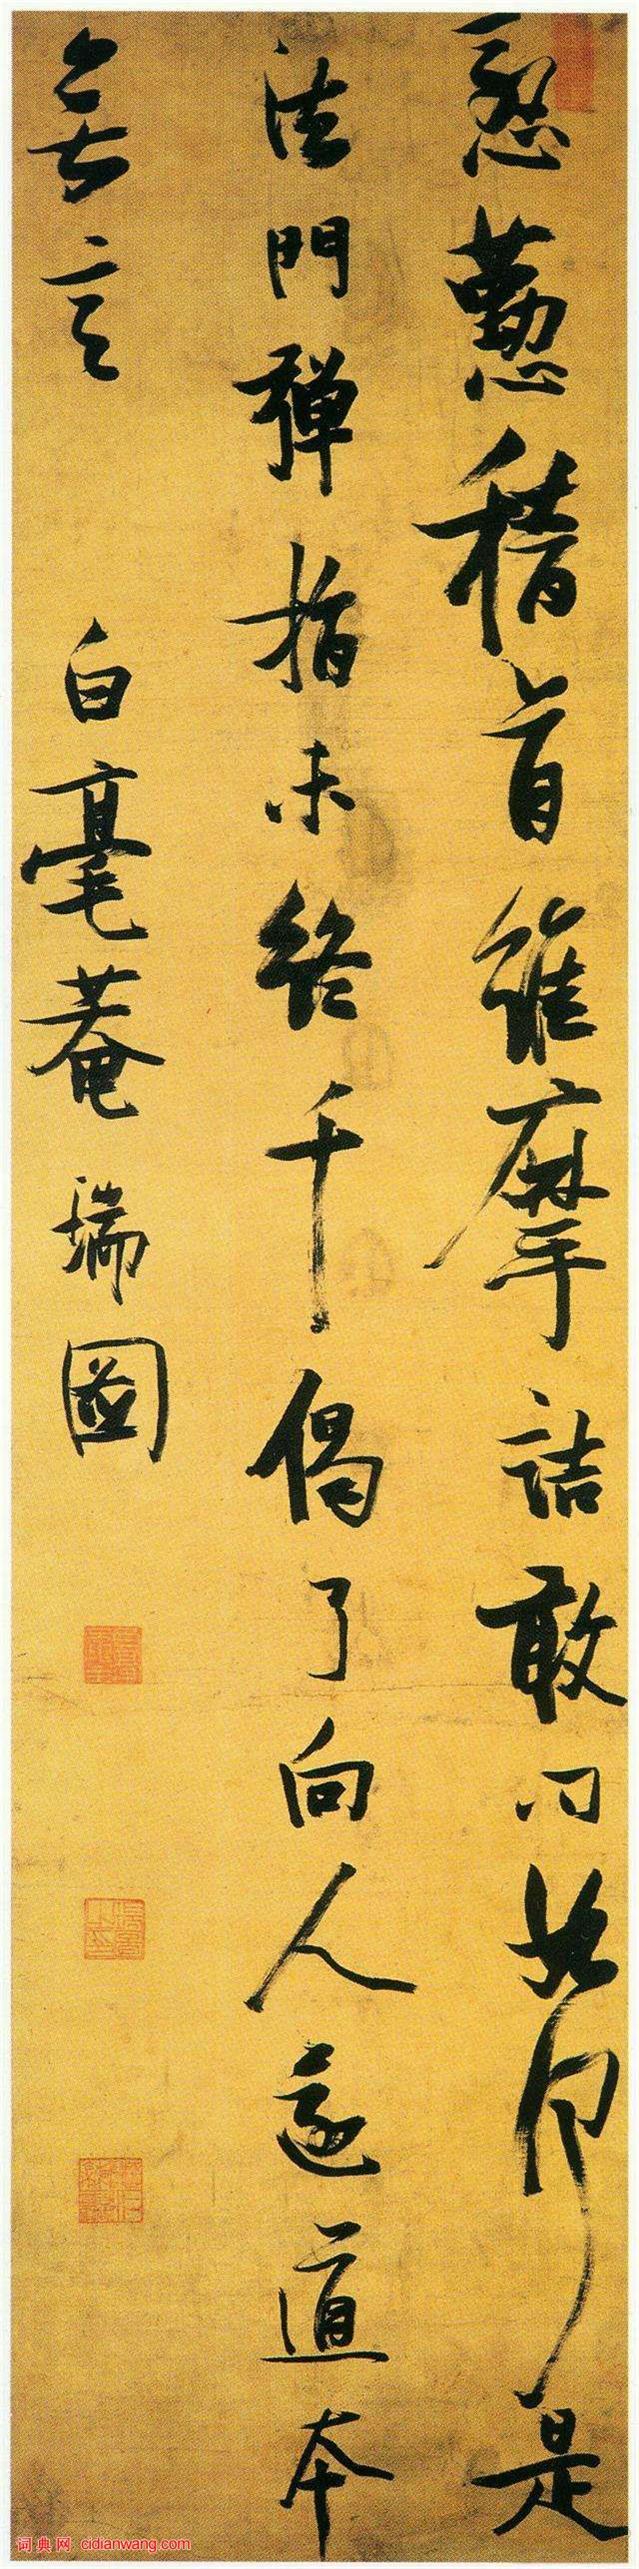 慇懃稽首維摩詰敢問如何是
法門彈指未終千偈了向人還道本
無言
白毫菴瑞圖
词典网 cidianwang.com